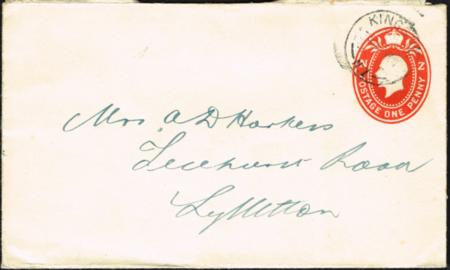 KING
N Z POSTAGE ONE PENNY
Mrs A D Harkess
Road
Lyttelton